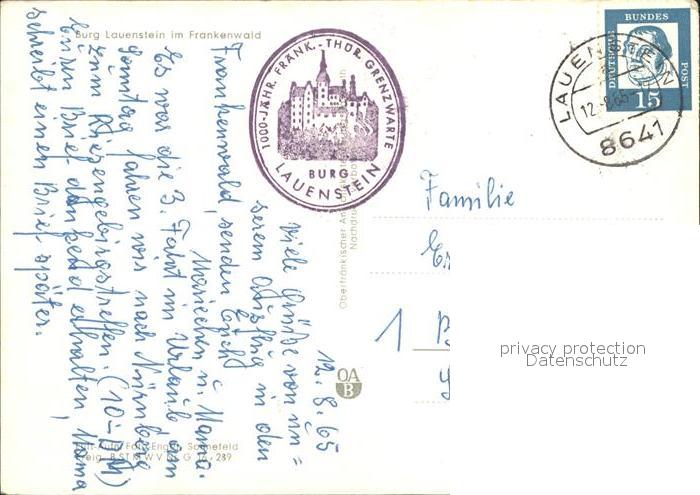 Burg Lauenstein im Frankenwald
1000-JÄHR. FRÄNK.-THÜR. GRENZWARTE
BURG
LAUENSTEIN
DEUTSCHE BUNDESPOST
15
LAUENSTEIN
12.-8.65
8641
12.8.65
Viele Grüße von un=
serem Ausflug in den
Frankenwald senden Euch
Mariechen u. Mama.
Es war die 3. Fahrt im Urlaub am
Sonntag fahren wir nach Nürnberg
zum Riesengebirgstreffen. (10-DM)
Euren Brief dankend erhalten, Mama
schreibt einen Brief später.
Familie
1
OA
B
Oberfränkischer
Nachdruck
289
privacy protection
Datenschutz